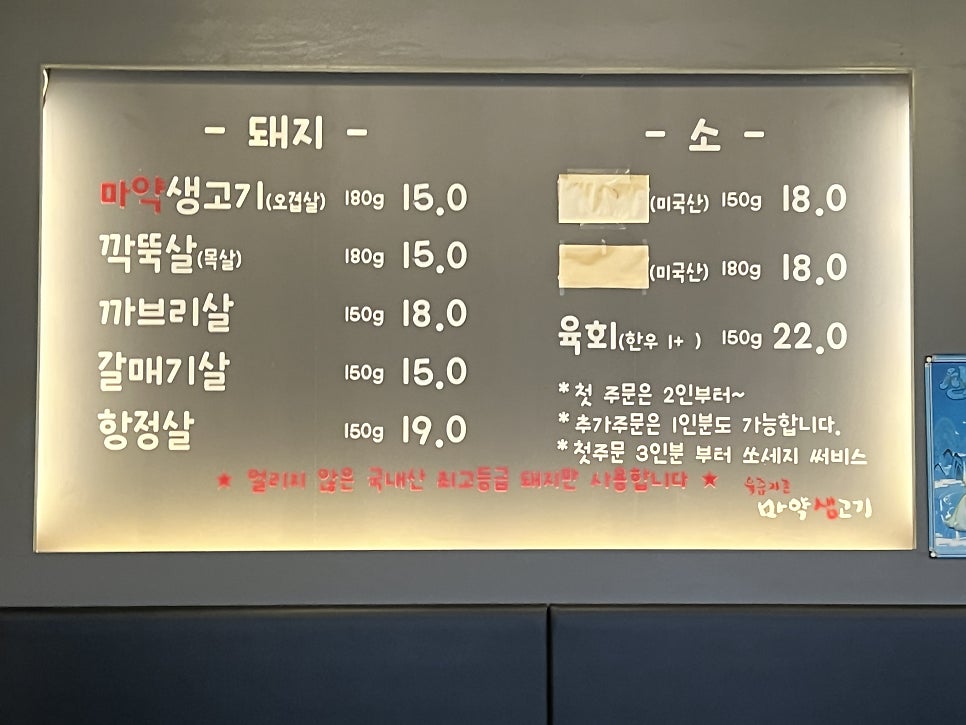 - 돼지 -
마약생고기(오겹살) 180g 15.0
깍뚝살(목살) 180g 15.0
까브리살 150g 18.0
갈매기살 150g 15.0
항정살 150g 19.0
- 소 -
(미국산) 150g 18.0
(미국산) 180g 18.0
육회(한우 1+ ) 150g 22.0
*첫 주문은 2인부터~
*추가주문은 1인분도 가능합니다.
*첫주문 3인분 부터 쏘세지 써비스
★ 얼리지 않은 국내산 최고등급 돼지만 사용합니다 ★
마약생고기